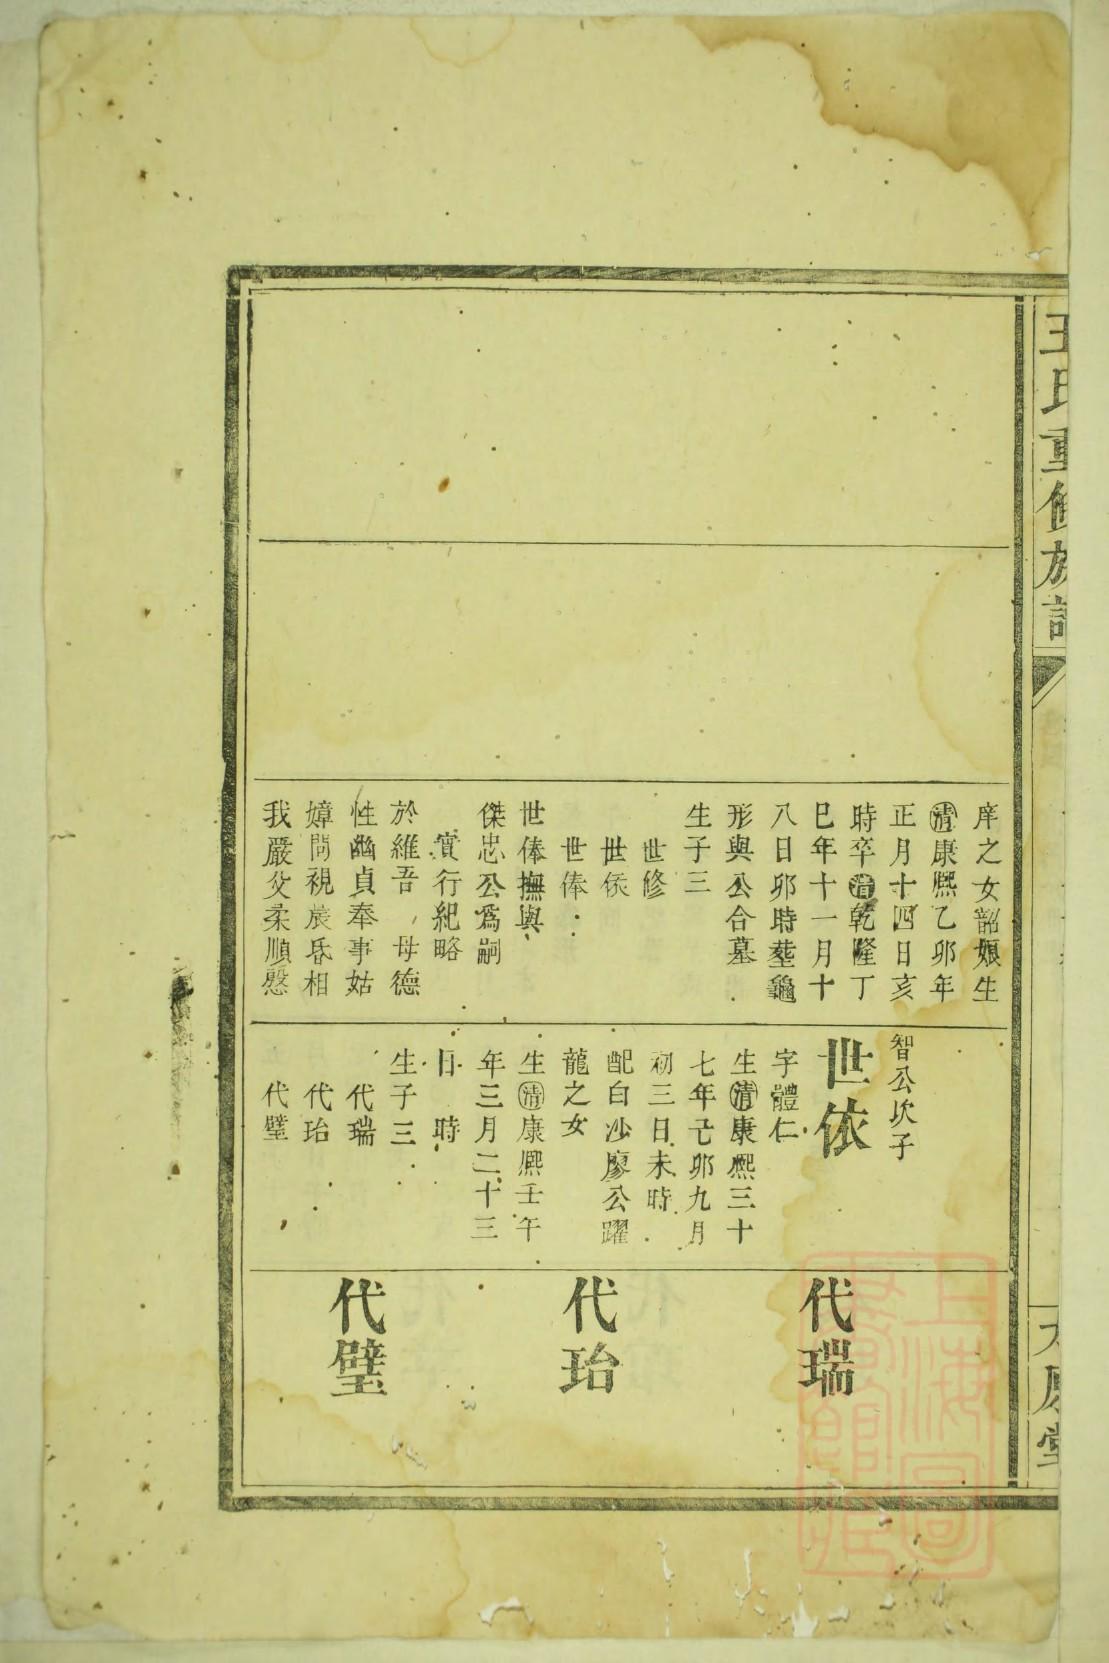 王氏重修族譜
太原堂
庠之女韶娘生
清康熙乙卯年
正月十四日亥
時卒清乾隆丁
巳年十一月十
八日卯時塟龜
形與公合墓
生子三
世修
世依
世俸
世俸撫與
傑忠公爲嗣
實行紀略
於維吾母德
性幽貞奉事姑
嫜問視晨昏相
我嚴父柔順慇
智公次子
世依
字體仁
生清康熙三十
七年己卯九月
初三日未時
配白沙廖公躍
龍之女
生清康熙壬午
年三月二十三
日 時
生子三
代瑞
代珆
代璧
代瑞
代珆
代璧
上海圖
書館藏